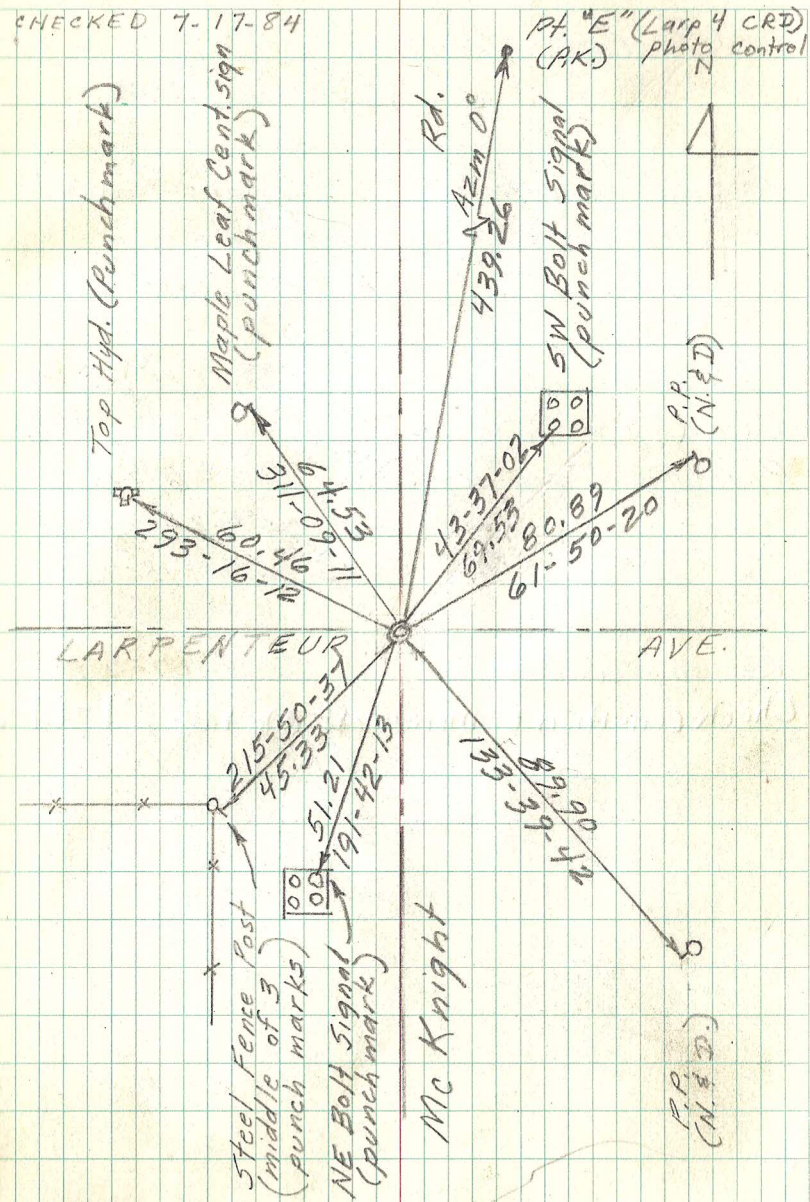 CHECKED 7-17-84
Pt. "E" (Larp 4 CRD)
(P.K.) photo control
N
Top Hyd. (Punchmark)
Maple Leaf Cent. sign
(punchmark)
Rd.
Azm 0°
439.26
SW Bolt Signal
(punch mark)
P.P.
(N. & D)
64.53
311-09-11
60.46
293-16-12
43-37-02
69.53
80.89
61-50-20
LARPENTEUR AVE.
215-50-37
45.33
51.21
191-42-13
133-39-42
Steel Fence Post
(middle of 3
punch marks)
NE Bolt Signal
(punch mark)
Mc Knight
P.P.
(N. & D.)